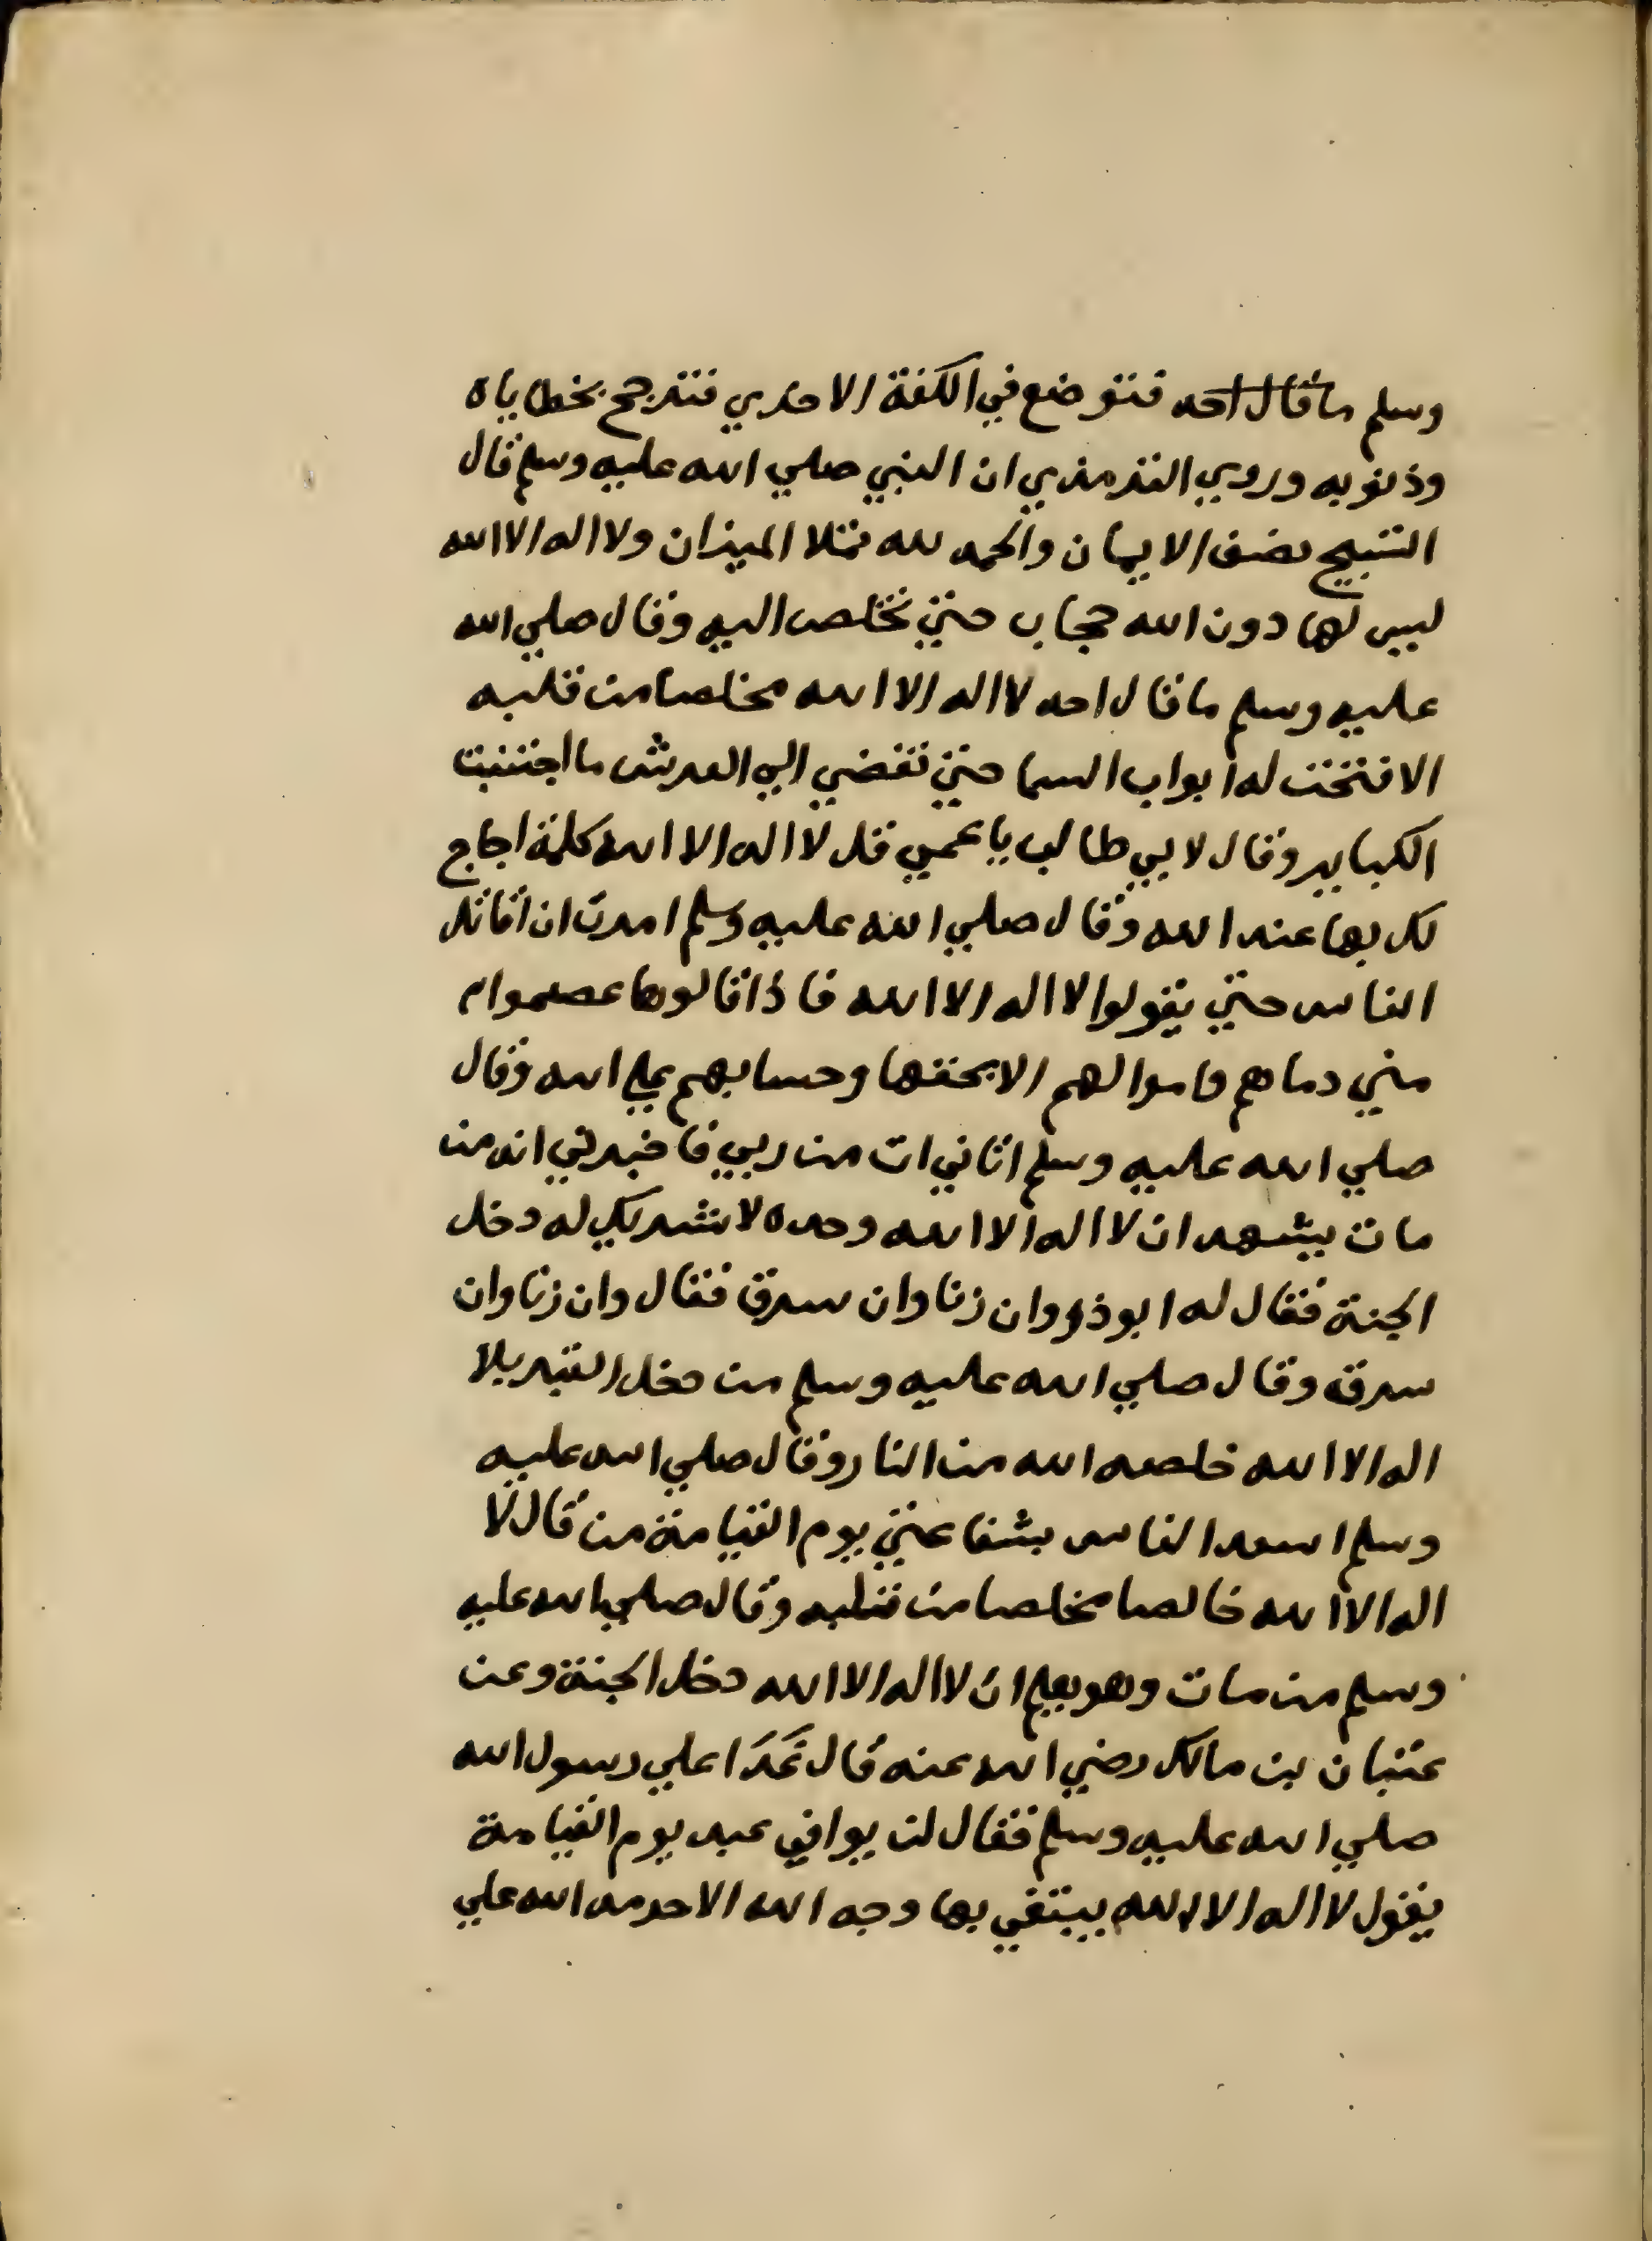 وسلم ما قال احد فتوضع في الكفة الاخري فترجح بخطاياه
وذنوبه وروي الترمذي ان النبي صلي الله عليه وسلم قال
التسبيح نصف الايمان والحمد لله تملا الميزان ولا اله الا الله
ليس لها دون الله حجاب حتي تخلص اليه وقال صلي الله
عليه وسلم ما قال احد لا اله الا الله مخلصا من قلبه
الا فتحت له ابواب السما حتي تفضي الي العرش ما اجتنبت
الكباير وقال لابي طالب يا عمي قل لا اله الا الله كلمة احاج
لك بها عند الله وقال صلي الله عليه وسلم امرت ان اقاتل
الناس حتي يقولوا لا اله الا الله فاذا قالوها عصموا م
مني دماهم واموالهم الا بحقها وحسابهم علي الله وقال
صلي الله عليه وسلم اتاني ات من ربي فاخبرني انه من
مات يشهد ان لا اله الا الله وحده لا شريك له دخل
الجنة فقال له ابو ذر وان زنا وان سرق فقال وان زنا وان
سرق وقال صلي الله عليه وسلم من دخل القبر بلا
اله الا الله خلصه الله من النار وقال صلي الله عليه
وسلم اسعد الناس بشفاعتي يوم القيامة من قال لا
اله الا الله خالصا مخلصا من قلبه وقال صلي الله عليه
وسلم من مات وهو يعلم ان لا اله الا الله دخل الجنة وعن
عتبان بن مالك رضي الله عنه قال غَدَا علي رسول الله
صلي الله عليه وسلم فقال لن يوافي عبد يوم القيامة
يقول لا اله الا الله يبتغي بها وجه الله الا حرمه الله علي